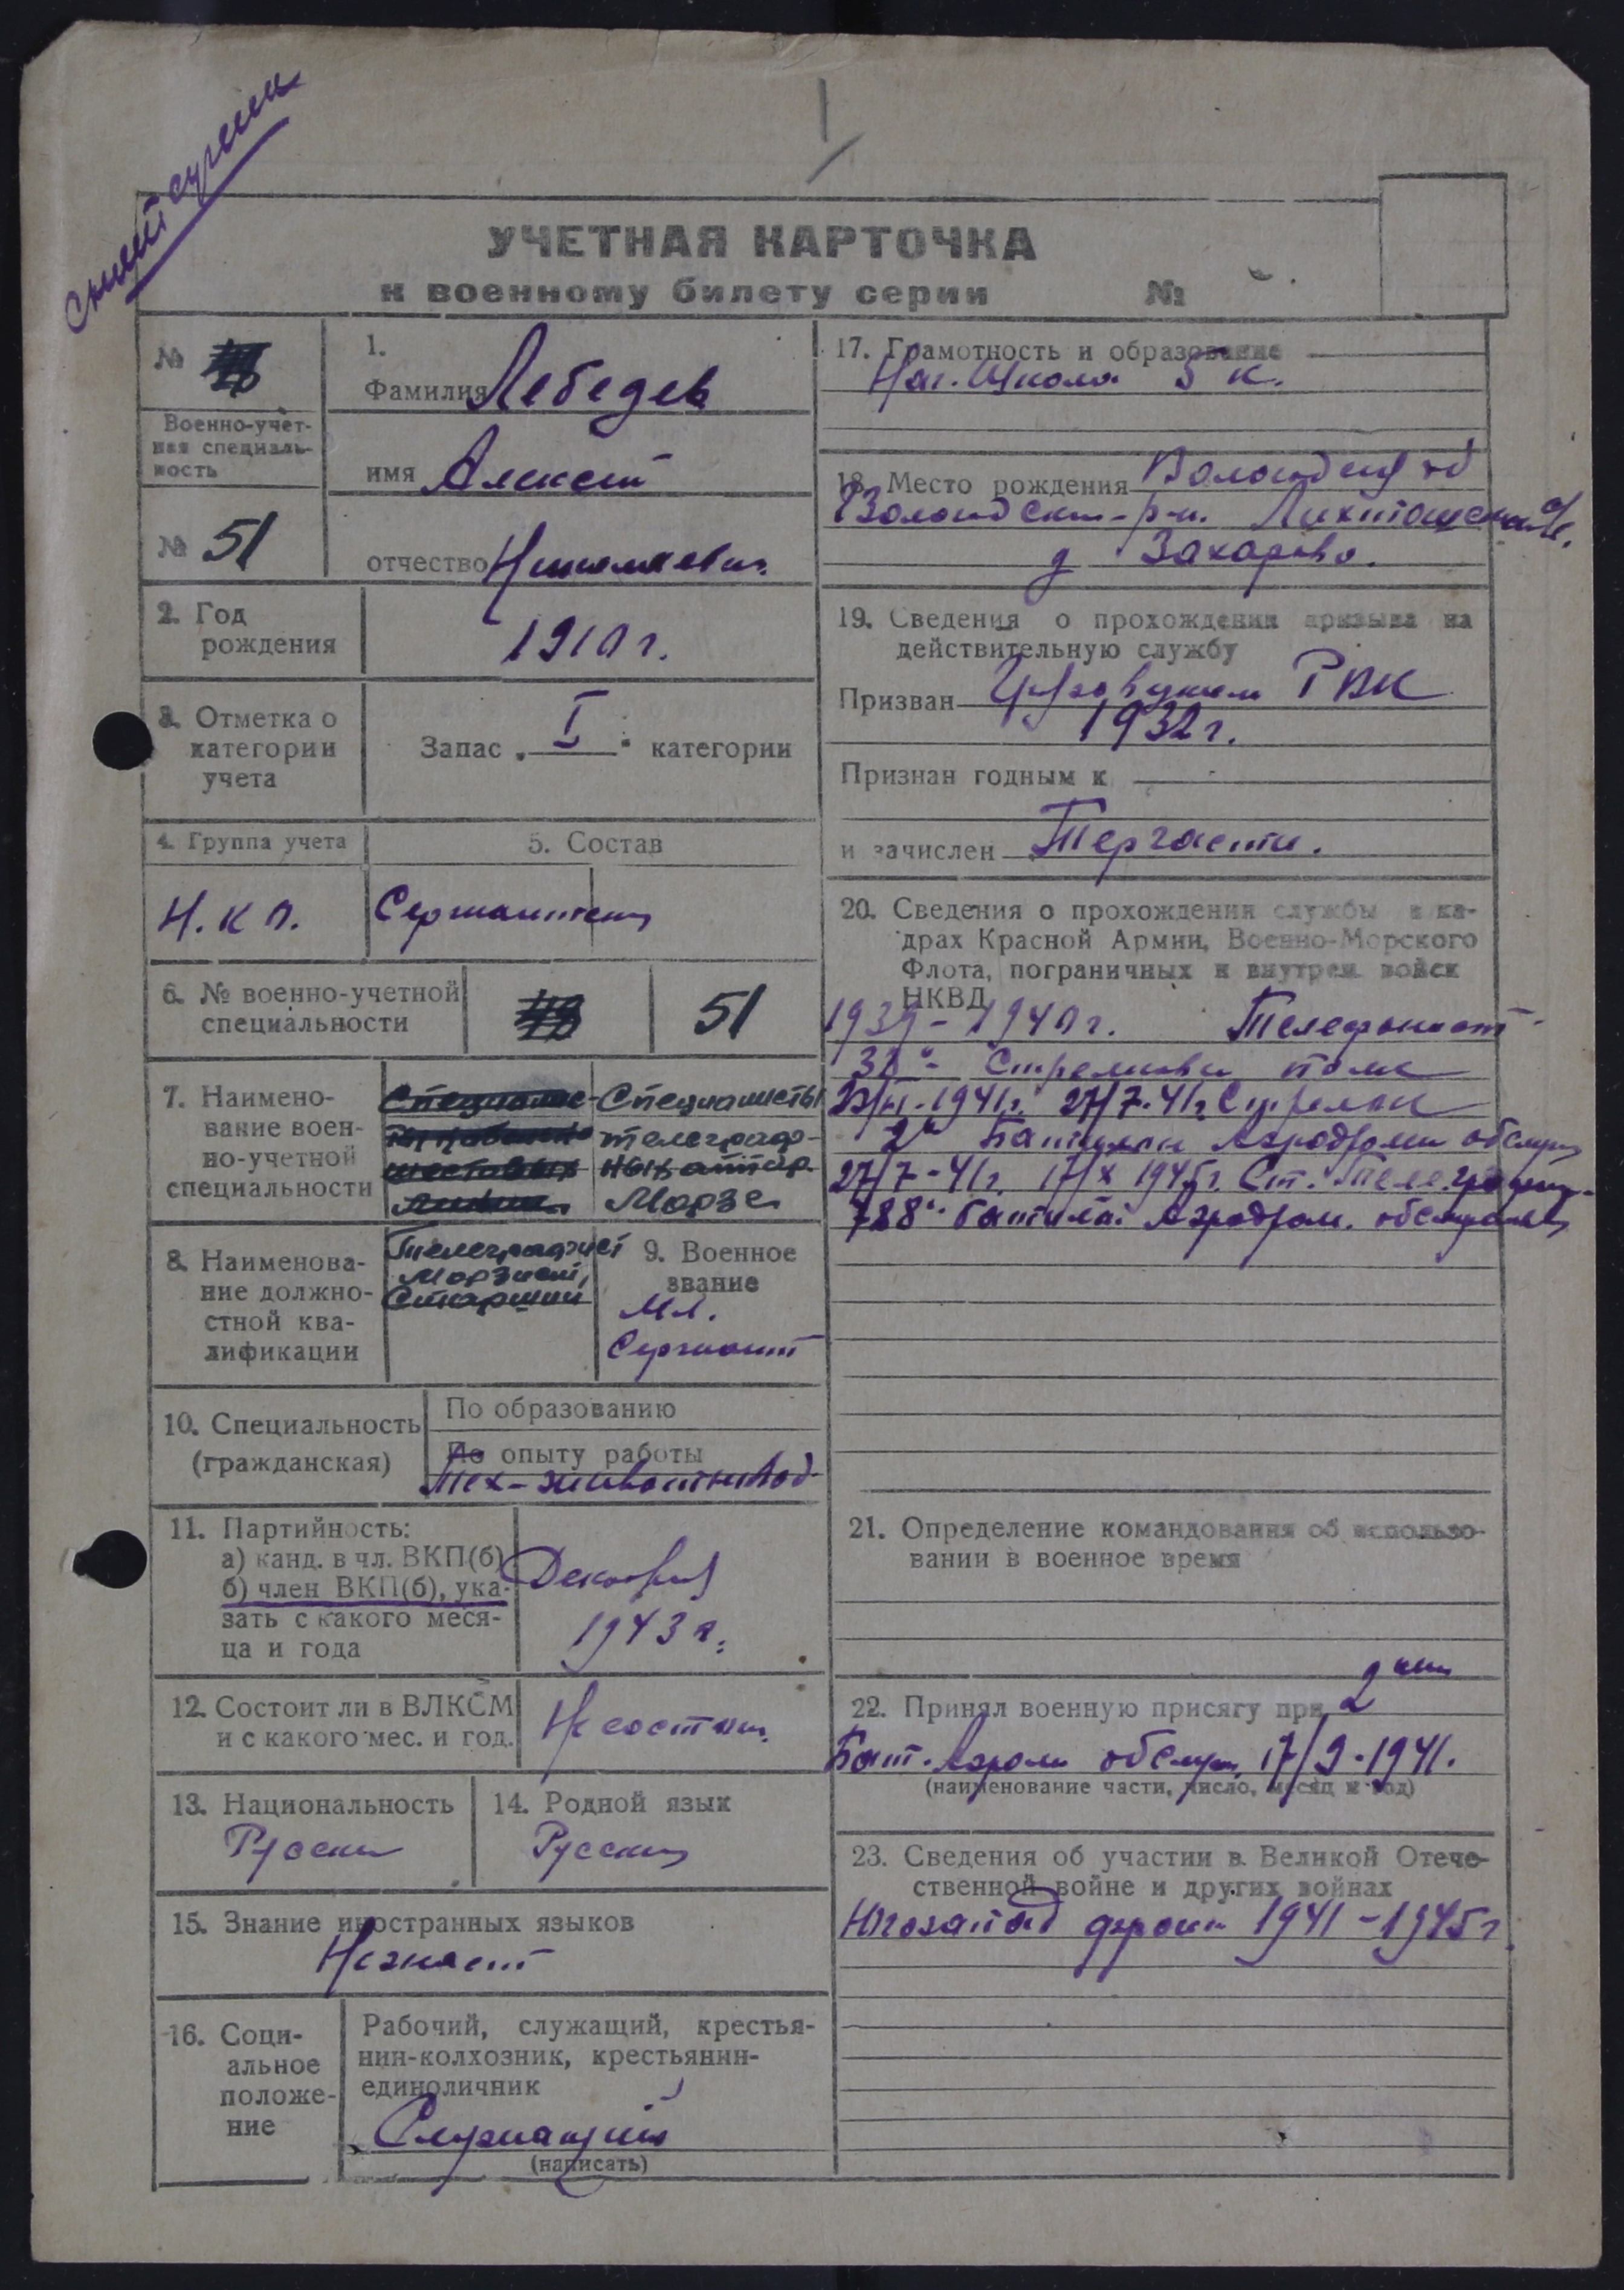 УЧЕТНАЯ КАРТОЧКА
к военному билету серии №
№
Военно-учет-
ная специаль-
ность
№ 51
1.
Фамилия Лебедев
имя Алексей
отчество Николаевич
2. Год
рождения
1910 г.
3. Отметка о
категории
учета
Запас „ I " категории
4. Группа учета
Н.К.О.
5. Состав
Сержантский
6. № военно-учетной
специальности
51
7. Наимено-
вание воен-
но-учетной
специальности
Специалисты
телеграф-
ных аппар.
Морзе
8. Наименова-
ние должно-
стной ква-
лификации
Телеграфист
Морзист,
Старший
9. Военное
звание
Мл.
Сержант
10. Специальность
(гражданская)
По образованию
По опыту работы
Тех-животновод
11. Партийность:
а) канд. в чл. ВКП(б)
б) член ВКП(б), ука-
зать с какого меся-
ца и года
Декабрь
1943 г.
12. Состоит ли в ВЛКСМ
и с какого мес. и год.
Не состоит
13. Национальность
Русский
14. Родной язык
Русский
15. Знание иностранных языков
Не знает
16. Соци-
альное
положе-
ние
Рабочий, служащий, крестья-
нин-колхозник, крестьянин-
единоличник
Служащий
(написать)
17. Грамотность и образование
Нач. Школа 3 к.
18. Место рождения Вологодск об
Вологдский р-н.
д Захарово.
19. Сведения о прохождении призыва на
действительную службу
Призван РВК
1932 г.
Признан годным к
и зачислен Терчасти.
20. Сведения о прохождении службы в ка-
драх Красной Армии, Военно-Морского
Флота, пограничных и внутрен. войск
НКВД
1939 - 1940 г. Телефонист
Стрелковый полк
1941 г. 27/7-41 г. Стрелок
2й Батальон Аэродромн обслуж
27/7-41 г. 17/X 1945 г. Ст. Телеграфист
788й батальо Аэродром. обслуживан
21. Определение командования об использо-
вании в военное время
22. Принял военную присягу при 2
Бат. Аэродром обслуж. 17/9-1941.
(наименование части, число, месяц и год)
23. Сведения об участии в Великой Отече-
ственной войне и других войнах
Югозапад фронт 1941-1945 г